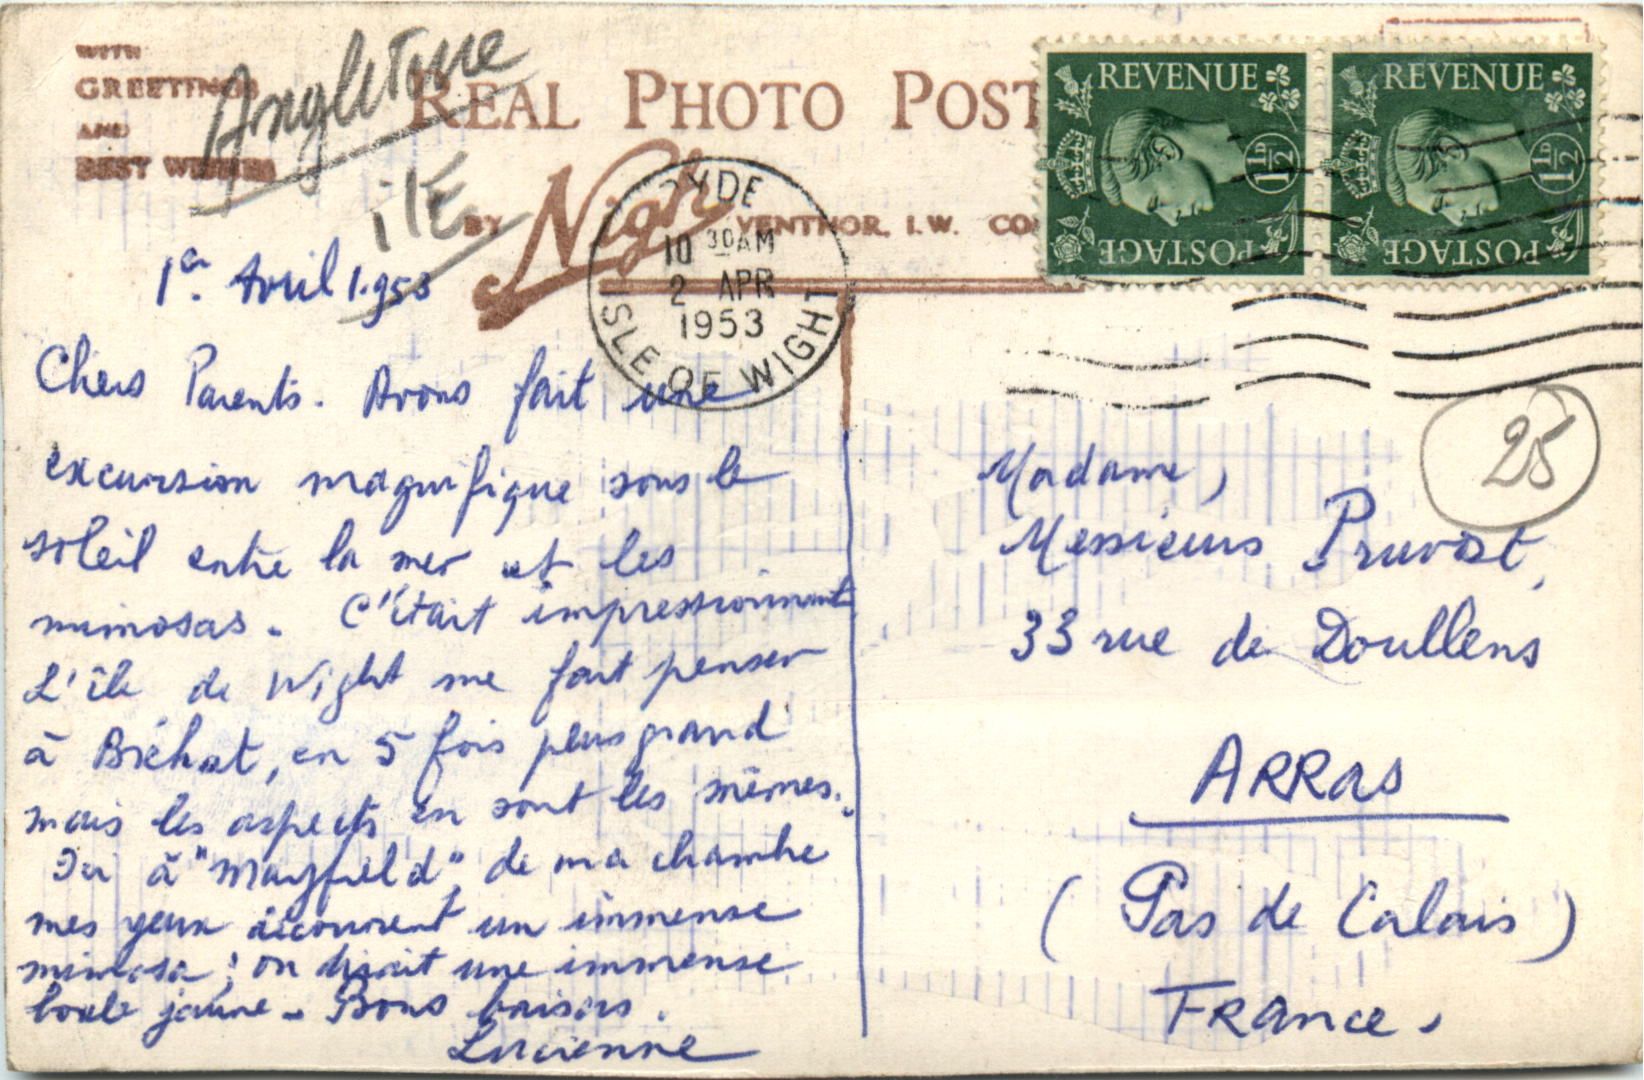 WITH
GREETINGS
AND
BEST WISHES
Angleterre
île
REAL PHOTO POST
BY Nigh VENTNOR, I.W. CO
RYDE
10 30AM
2 APR
1953
ISLE OF WIGHT
REVENUE
1½D
POSTAGE
REVENUE
1½D
POSTAGE
25
1er. Avril 1.953
Chers Parents. Avons fait une
excursion magnifique sous le
soleil entre la mer et les
mimosas. C'était impressionnant
L'île de Wight me fait penser
à Bréhat, en 5 fois plus grand
mais les aspects en sont les mêmes.
Ici à "Mayfield", de ma chambre
mes yeux découvrent un immense
mimosa; on dirait une immense
boule jaune - Bons baisers.
Lucienne
Madame,
Messieurs Pruvost,
33 rue de Doullens
ARRAS
(Pas de Calais)
FRANCE.